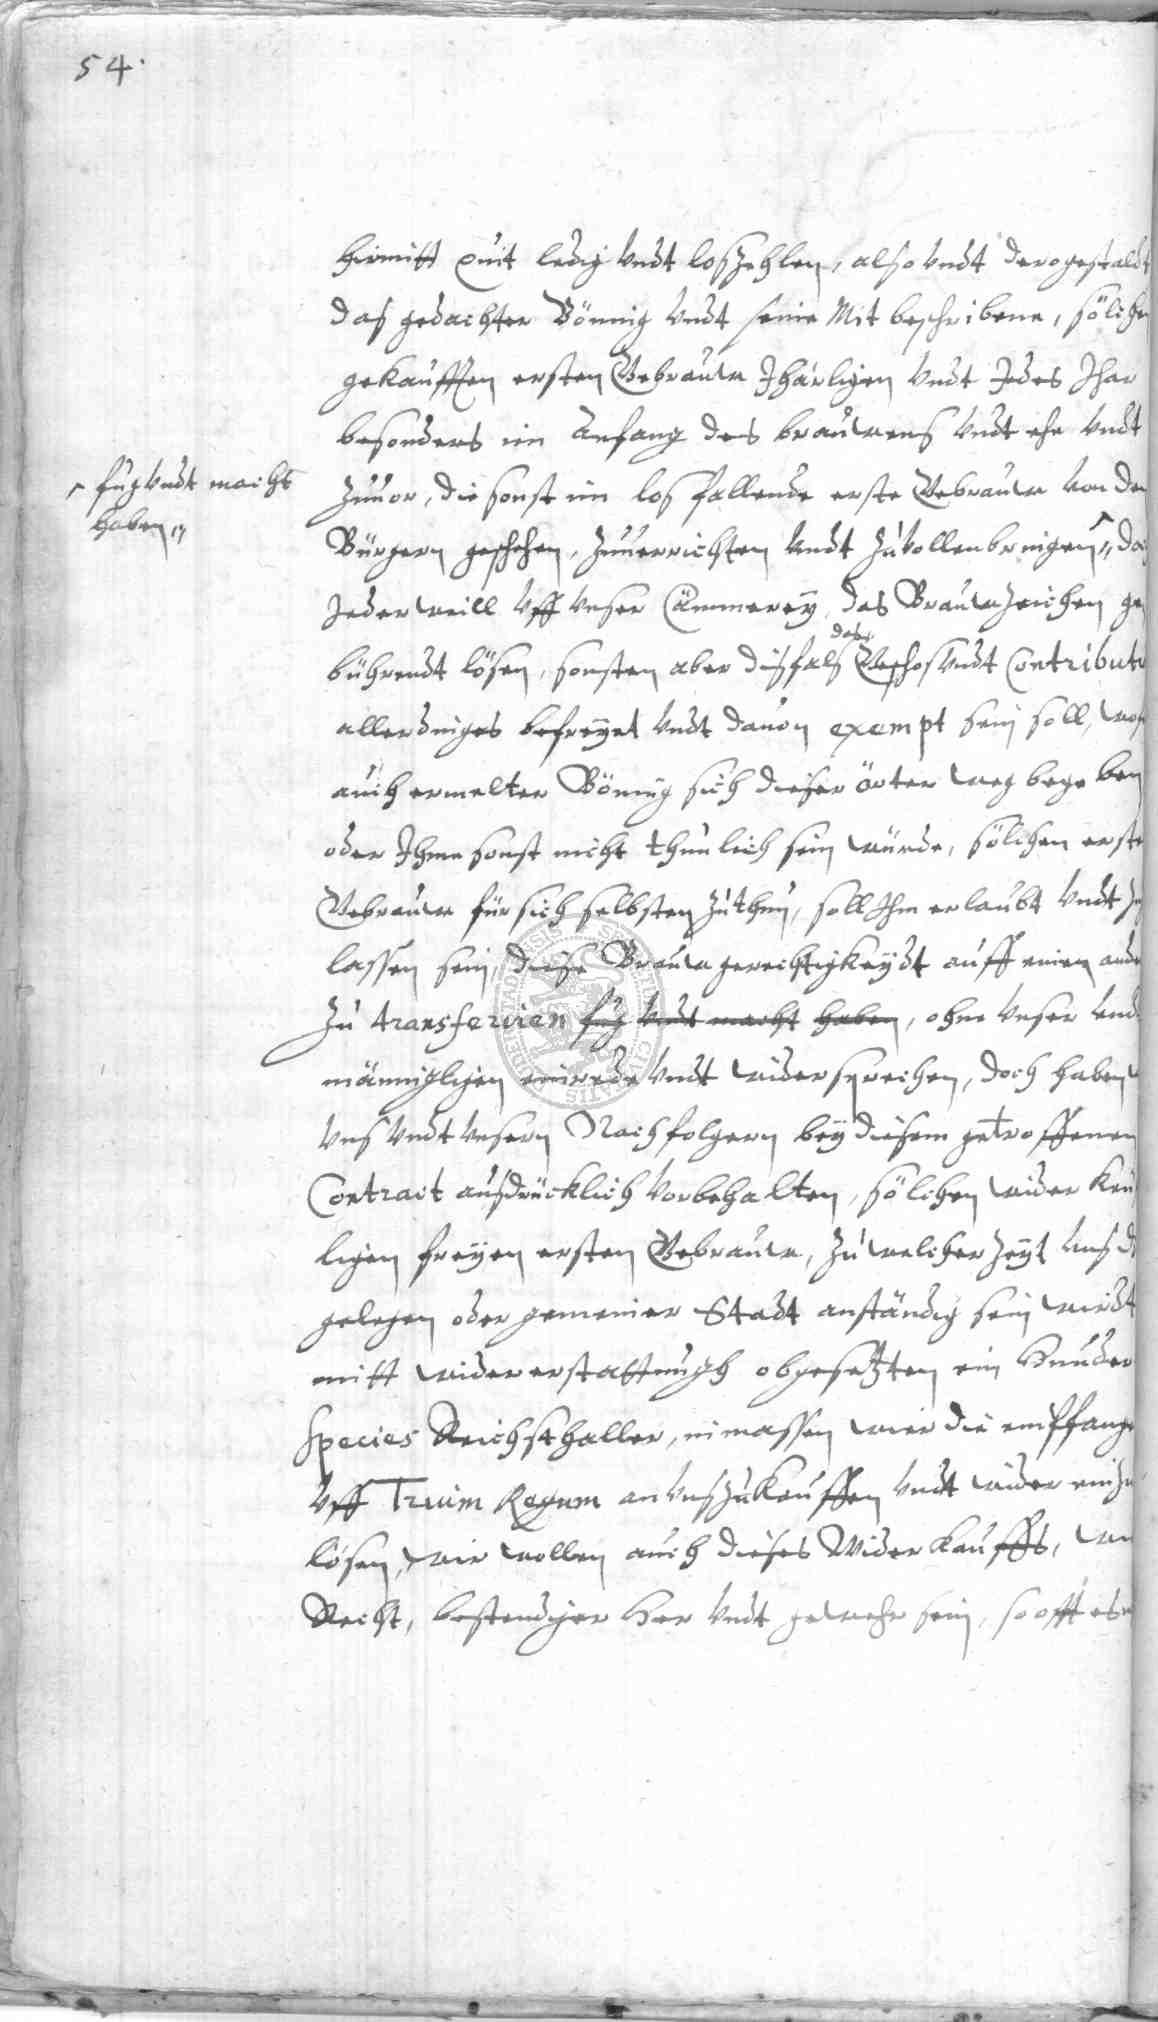 54.
hirmitt quit ledig vndt loszehlen, also vndt derogestaldt
das gedachter Bönnig vndt seine Mit beschribene, sölchen
gekaufften ersten Gebrauw Jhärligen vndt Jedes Jhar
besonders im Anfang des brauwens vndt ehe vndt
zuuor, die sonst im los fallende erste Gebrauw von den
Bürgern geschehen, zuuerrichten vndt zuvollenbringen,
^ fug vndt macht
haben,
Jederweill vff vnser Cämmerey das Brauwzeichen ge
bührendt lösen, sonsten aber disfals des Geschos vndt Contribut
allerdinges befreyet vndt dauon exempt sein soll,
auch ermelter Böning sich dieser örter weg begeben
oder Ihme sonst nicht thunlich sein würde, sölchen erste
Gebrauw für sich selbsten zuthun, soll Ihm erlaubt vndt zu
lassen sein, diese Brauw gerechtigkeydt auff einen ander
zu transferiren fug vndt macht haben, ohne vnser vnd
männigligen einrede vndt widersprechen, doch haben
vns vndt vnsern Nachfolgern bey diesem getroffenen
Contract ausdrücklich vorbehalten, sölchen wider keuf
ligen freyen ersten Gebrauw, zu welcher zeyt vns
gelegen oder gemeiner Stadt anständig sein wirdt
mitt widererstattungh obgesetzten ein Hundert
Species Reichsthaller, inmassen wir die empfange
vff Trium Regum an vns zukauffen vndt wider einzu
lösen, wir wollen auch dieses Widerkauffs,
Recht, bestendiger Her vndt gewehr sein, so offt es